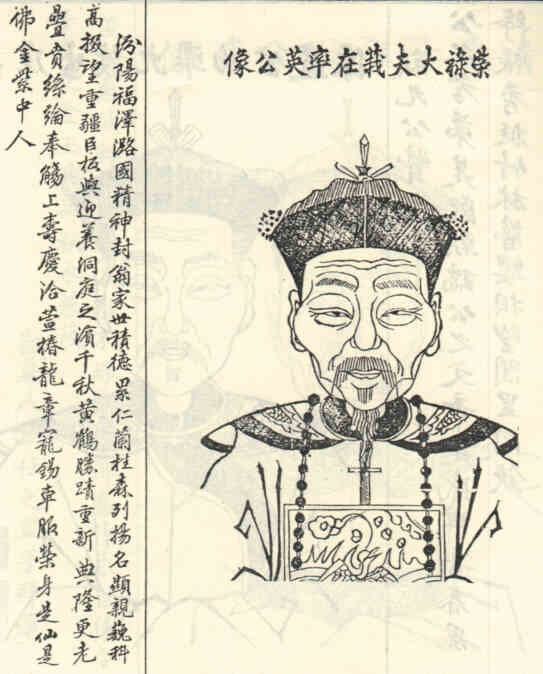 榮祿大夫莪在率英公像
汾陽福澤潞國精神封翁家世積德累仁蘭桂森列揚名顯親巍科
高掇望重疆臣板輿迎養洞庭之濱千秋黃鶴勝蹟重新典隆更老
疊賁絲綸奉觴上壽慶洽萱椿龍章寵錫車服榮身是仙是
佛金粟中人